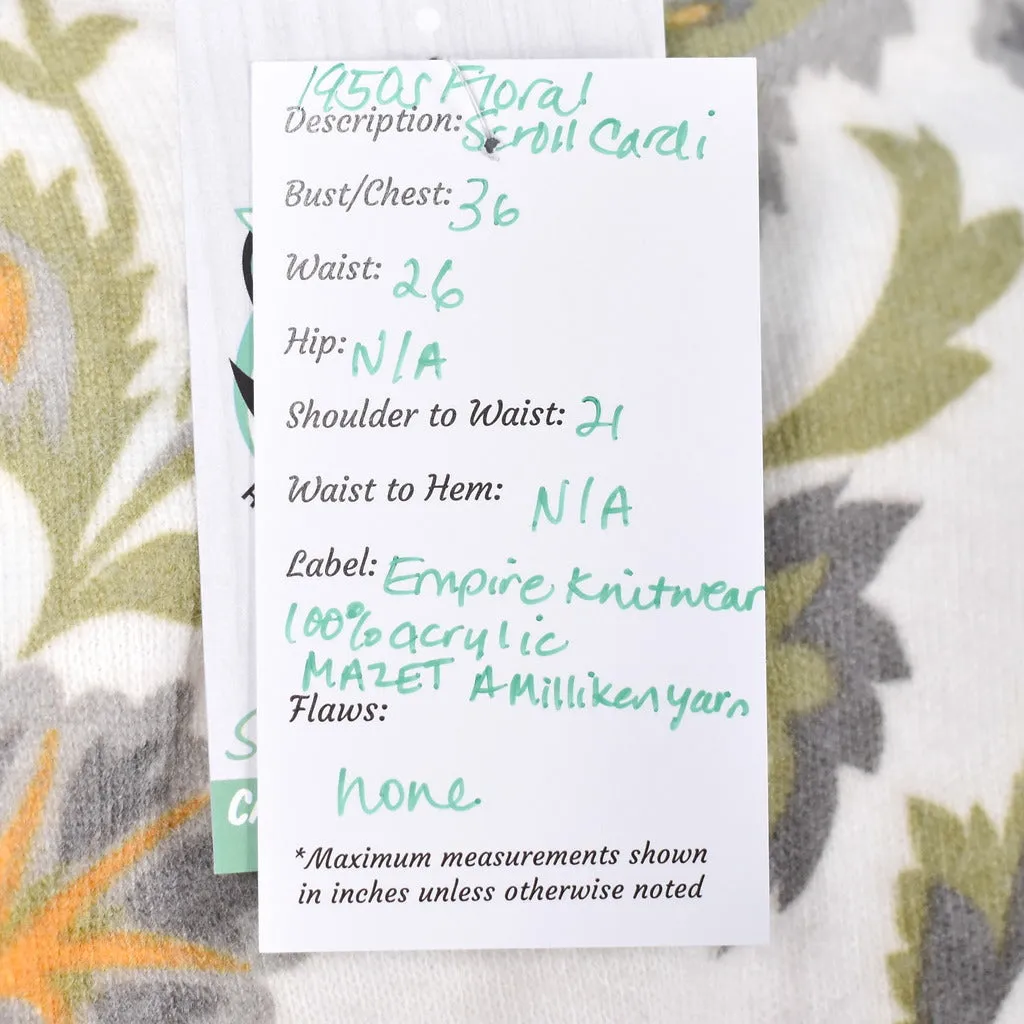 1950s Floral
Description: Scroll Cardi
Bust/Chest: 36
Waist: 26
Hip: N/A
Shoulder to Waist: 21
Waist to Hem: N/A
Label: Empire Knitwear
100% acrylic
MAZET A Milliken yarn
Flaws:
none
*Maximum measurements shown
in inches unless otherwise noted